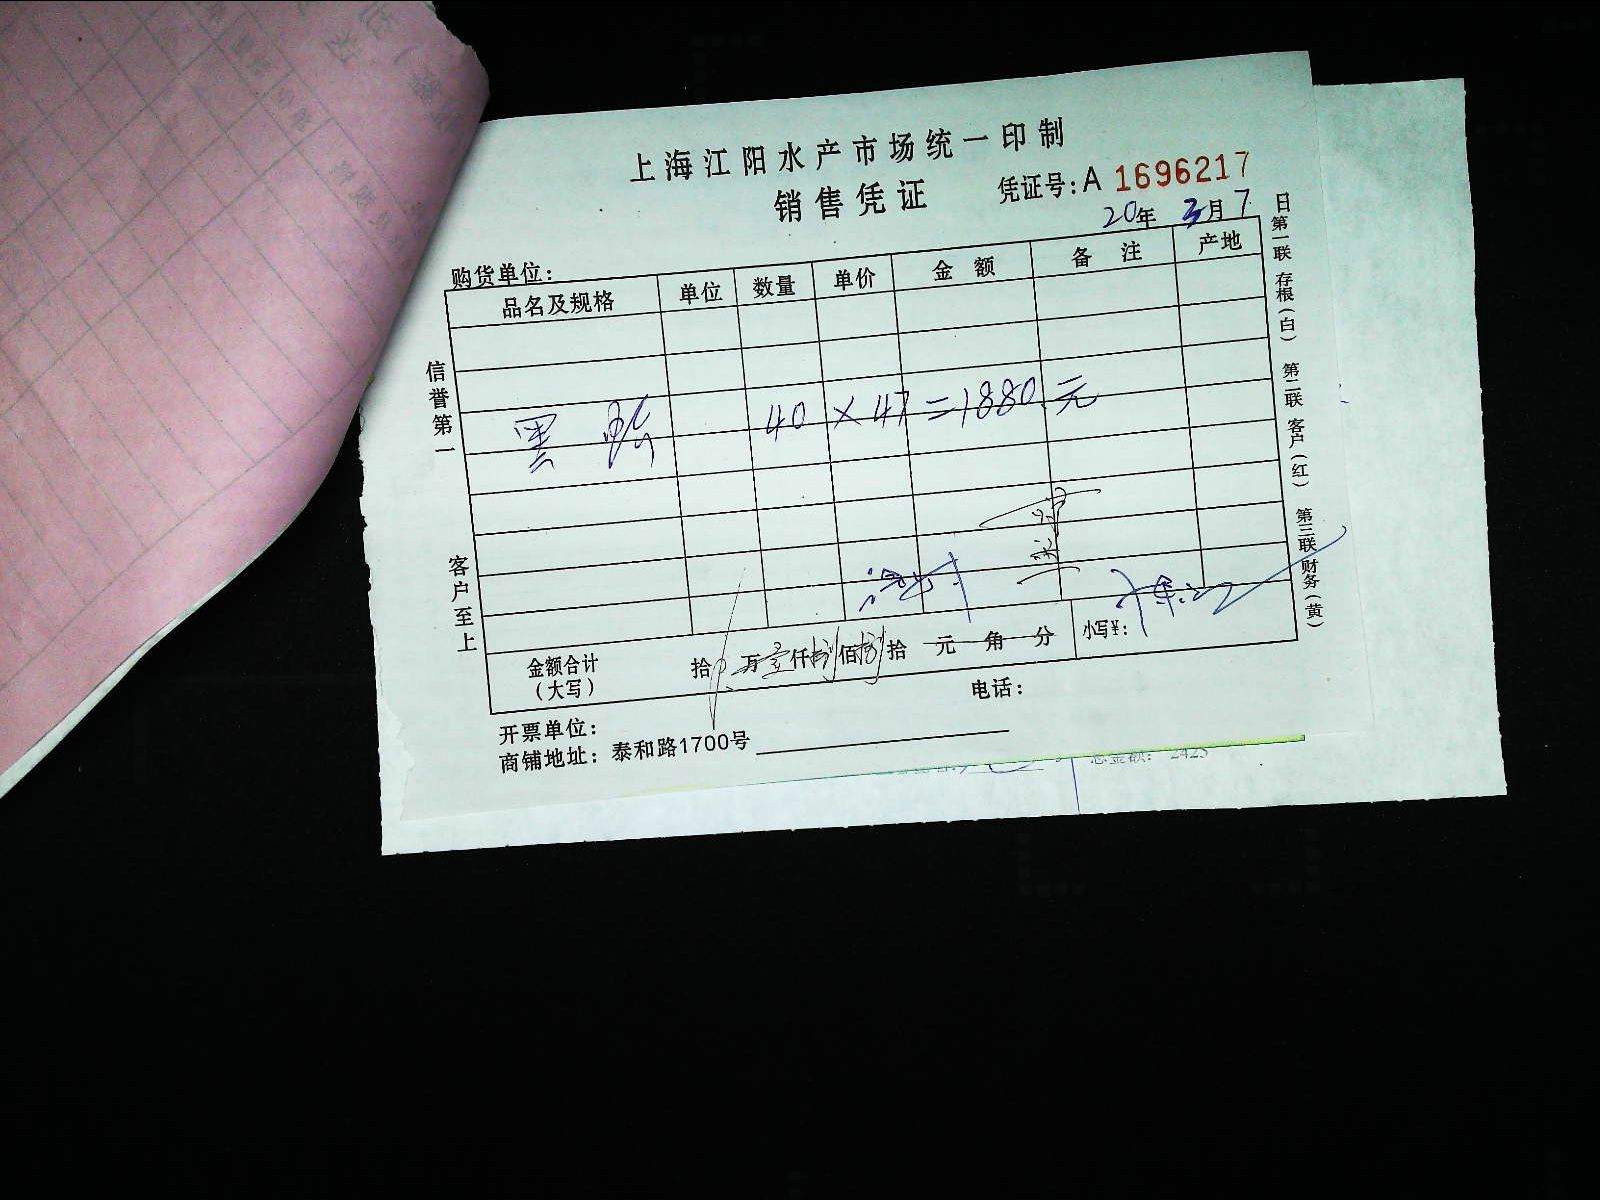 上海江阳水产市场统一印制
销售凭证
凭证号:A 1696217
20年 3月 7日
购货单位:
品名及规格 单位 数量 单价 金额 备注 产地
黑 40 × 47 = 1880 元
信誉第一
客户至上
金额合计(大写) 拾 万壹仟捌佰捌拾 元 角 分 小写¥:
开票单位: 电话:
商铺地址: 泰和路1700号
第一联 存根(白) 第二联 客户(红) 第三联 财务(黄)
总金额: 2425